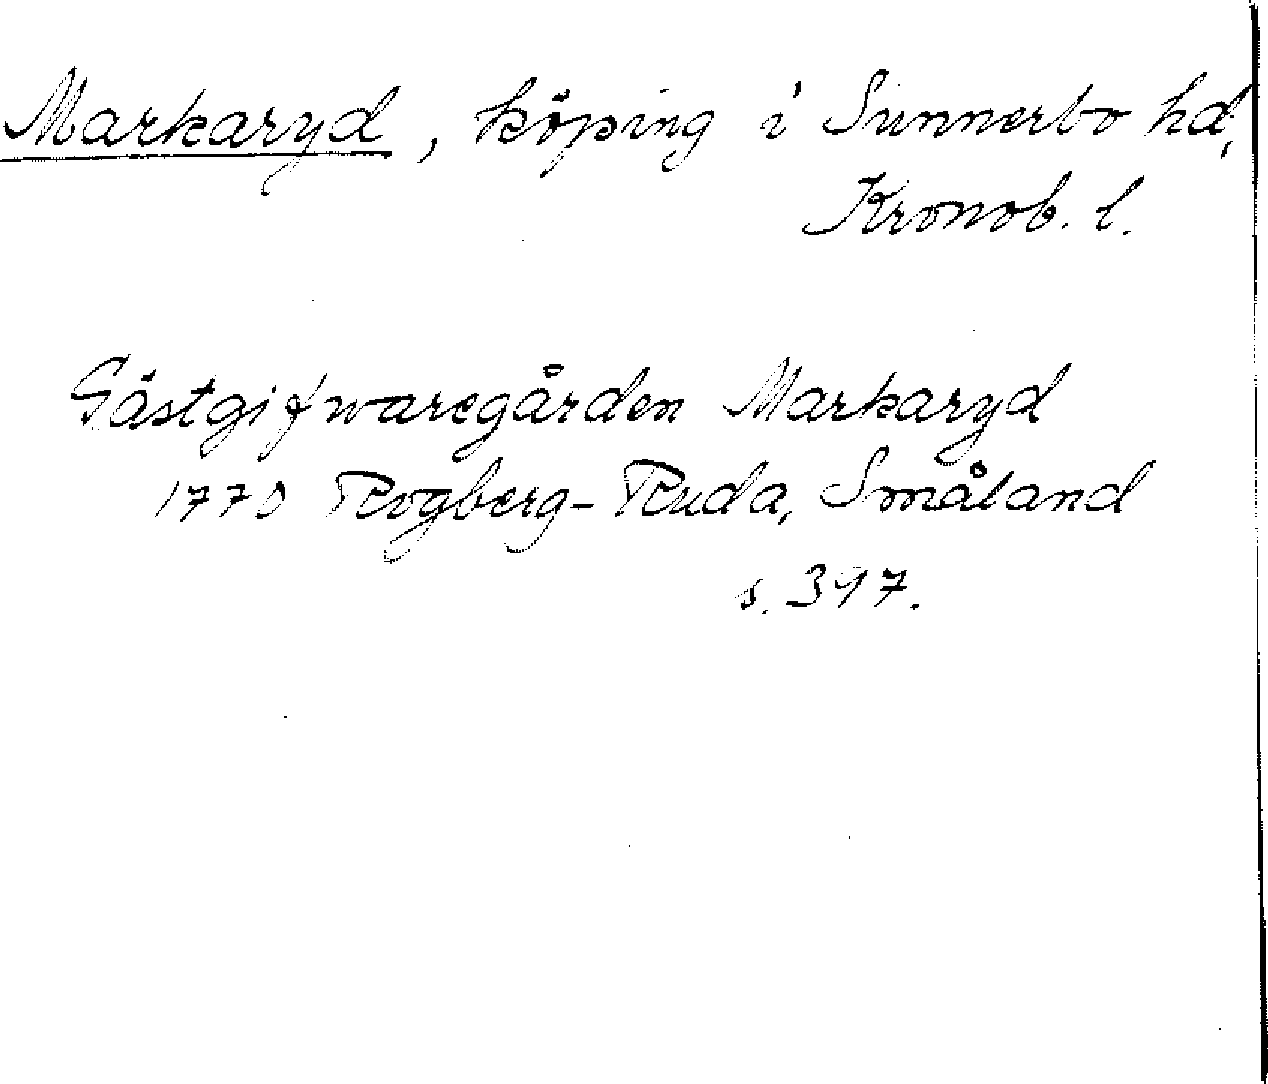 Markaryd, köping i Sunnerbo hd,
Kronob. l.
Gästgifwaregården Markaryd
1770 Rogberg-Ruda, Småland
s. 397.